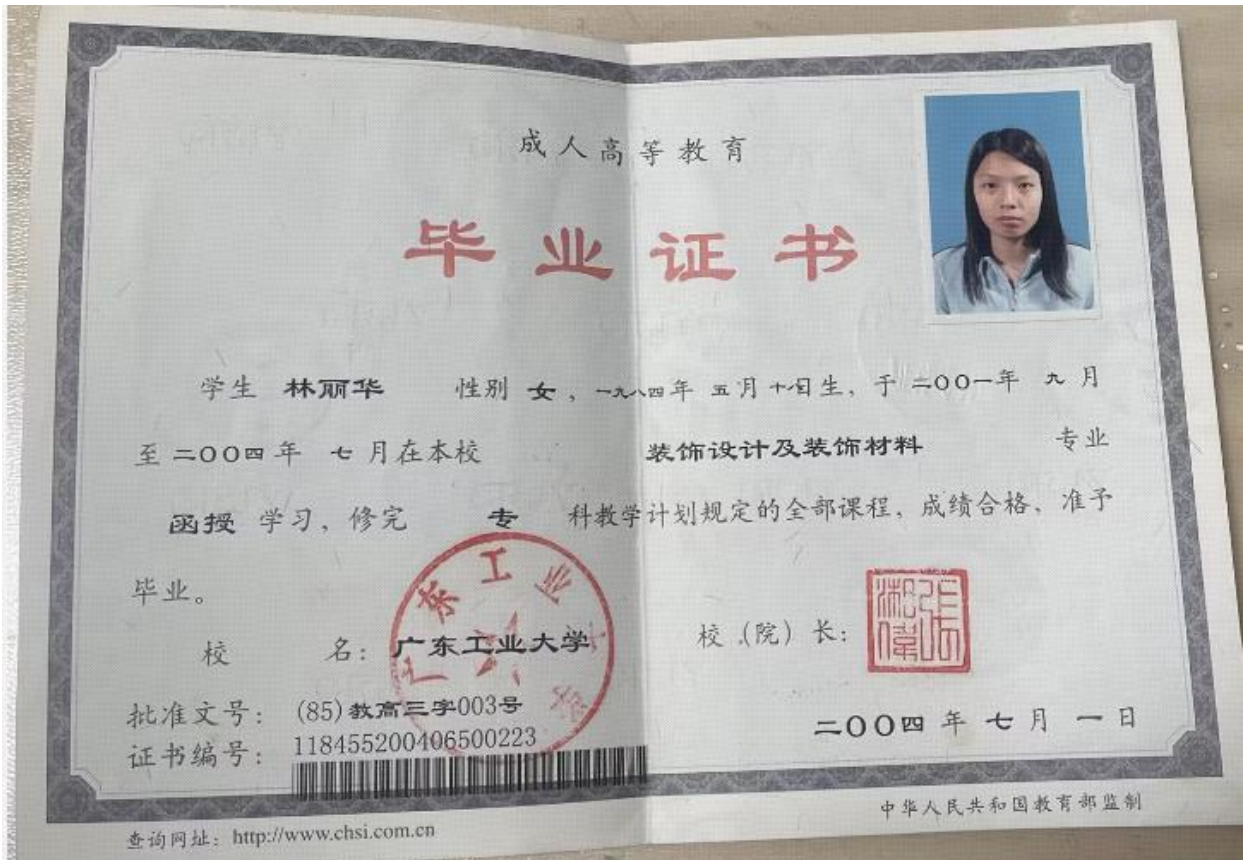 成人高等教育
毕业证书
学生 林丽华 性别 女，一九八四年 五月十 日生，于 二００一年 九月
至 二００四年 七月在本校 装饰设计及装饰材料 专业
函授 学习，修完 专 科教学计划规定的全部课程，成绩合格，准予
毕业。
校 名：广东工业大学
校（院）长：
张湘伟
批准文号：(85)教高三字003号
证书编号：118455200406500223
二００四 年 七 月 一 日
查询网址：http://www.chsi.com.cn
中华人民共和国教育部监制